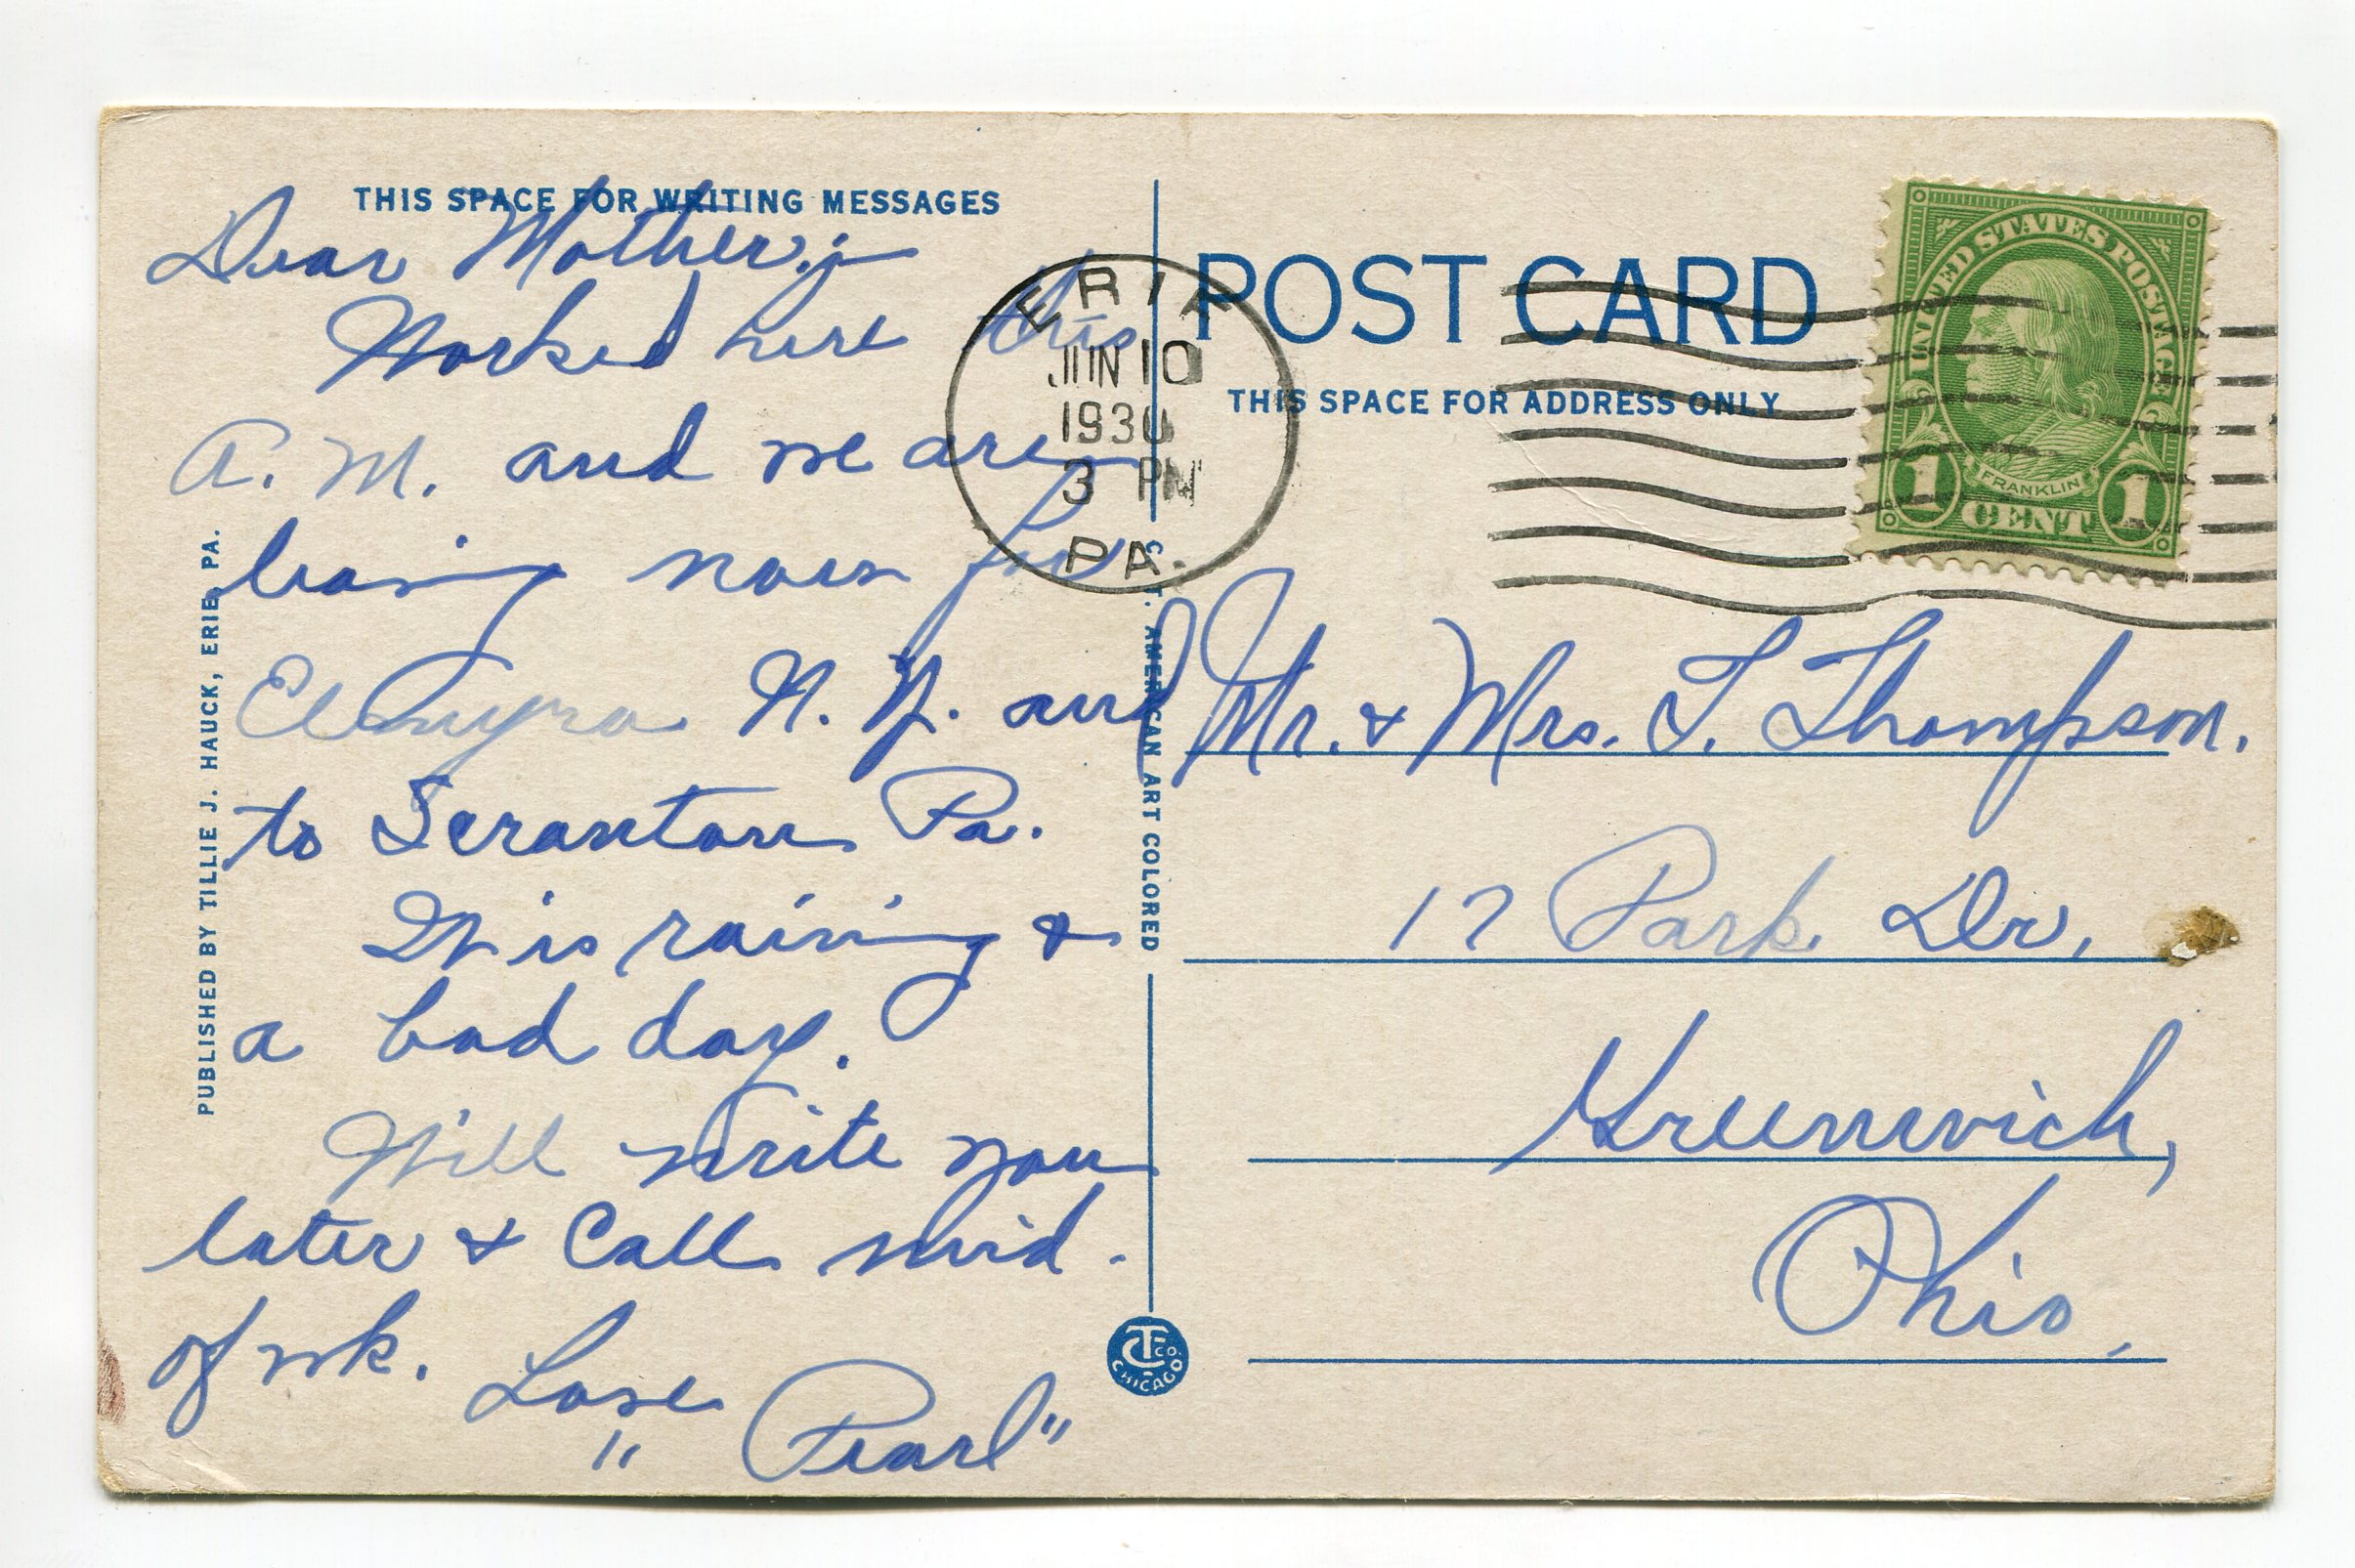 THIS SPACE FOR WRITING MESSAGES
Dear Mother;-
Worked here this
A.M. and we are
leaving now for
Elmyra N.Y. and
to Scranton Pa.
It is raining &
a bad day.
Will write you
later & Call mid.
of wk. Love
"Pearl"
PUBLISHED BY TILLIE J. HAUCK, ERIE, PA.
C. T. AMERICAN ART COLORED
CTCO.
CHICAGO
ERIE
JUN 10
1930
3 PM
PA.
POST CARD
THIS SPACE FOR ADDRESS ONLY
UNITED STATES POSTAGE
FRANKLIN
1 CENT 1
Mr. & Mrs. T. Thompson.
17 Park Dr.
Greenwich,
Ohio.